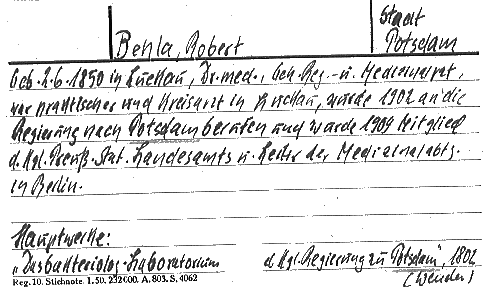 Behla, Robert
Stadt
Potsdam
Geb. 2.6.1850 in Luckau, Dr. med., Geh. Reg.- u. Medizinalrat,
war praktischer und Kreisarzt in Luckau, wurde 1902 an die
Regierung nach Potsdam berufen und wurde 1904 Mitglied
d. Kgl. Preuß. Stat. Landesamts u. Leiter der Medizinalabtg.
in Berlin.
Hauptwerke:
"Das bakteriolog. Laboratorium d. Kgl. Regierung zu Potsdam", 1902
Reg. 10. Stichnote. 1. 50. 232000. A. 803. S. 4062